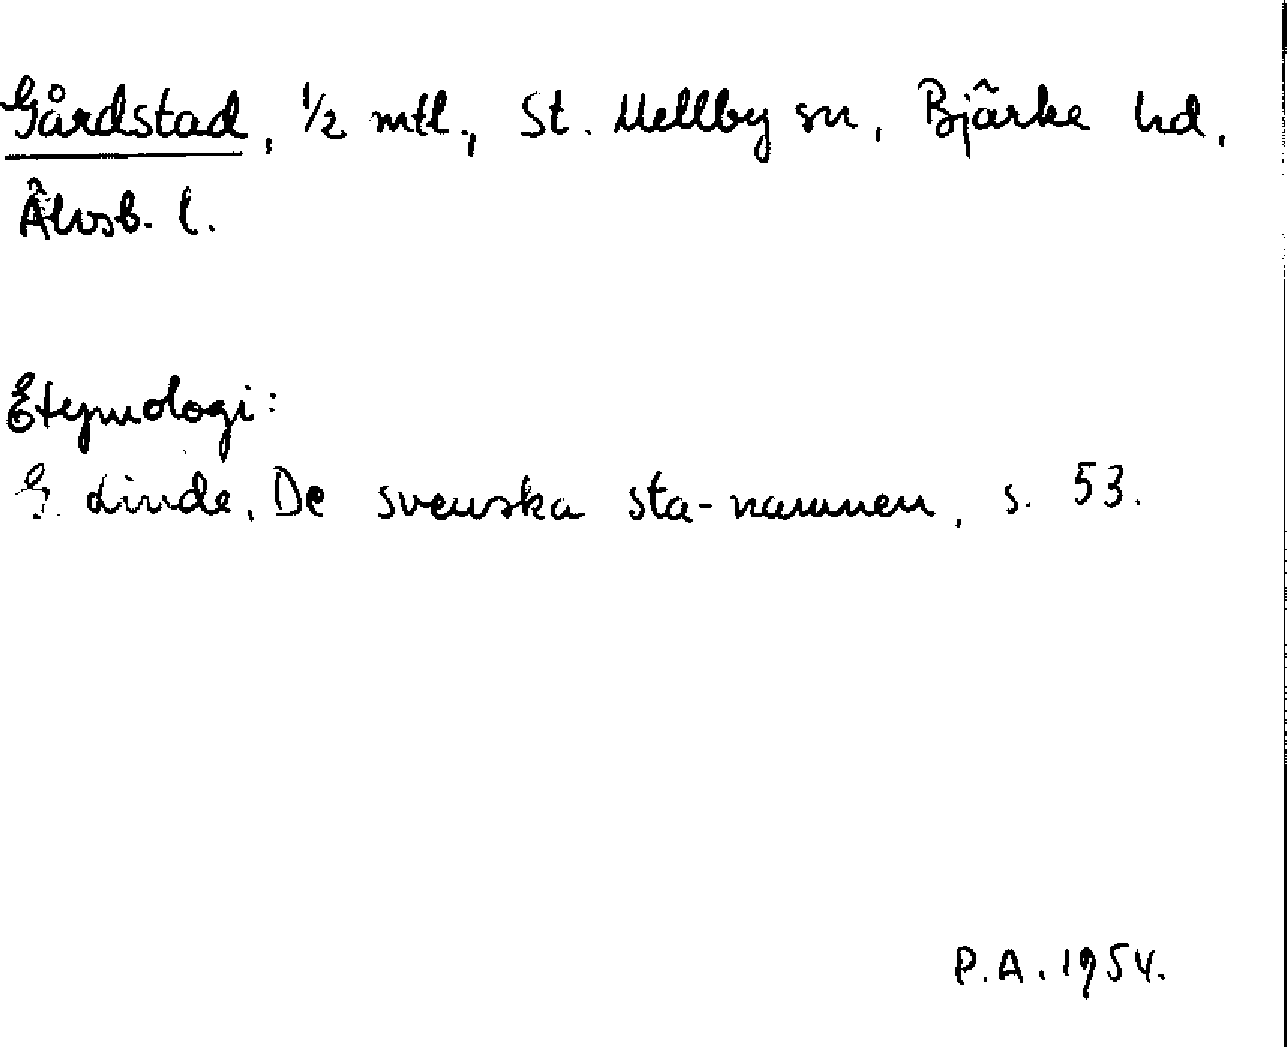 Gårdstad, 1/2 mtl., St. Mellby sn, Bjärke hd,
Älvsb. l.
Etymologi:
G. Linde, De svenska sta-namnen, s. 53.
P.A. 1954.